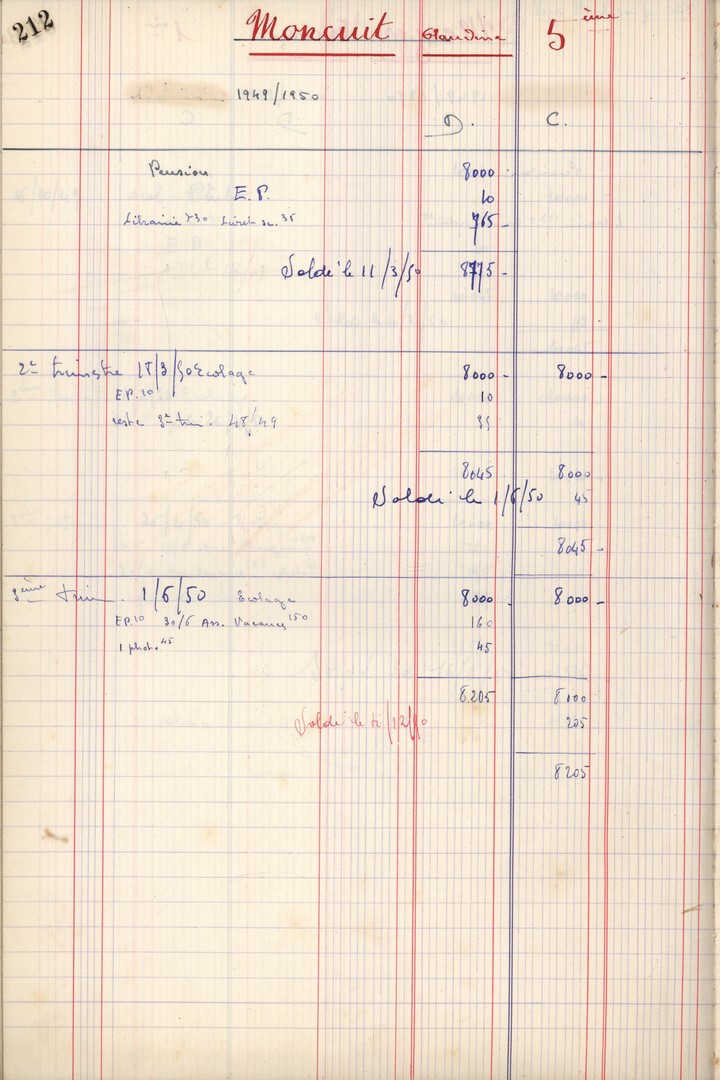 212
Moncuit Claudine 5ème
1949/1950
D. C.
Pension 8000
E.P. 10
Librairie 730 Livret sc. 35 765
Soldé le 11/3/50 8775
2e trimestre 15/3/50 Ecolage 8000 8000
EP. 10 10
reste 3e tri. 48/49 35
8045 8000
Soldé le 1/6/50 45
8045
3ème trim. 1/6/50 Ecolage 8000 8000
EP. 10 30/6 Ass. Vacances 150 160
1 phot. 45 45
8205 8000
Soldé le 205
8205